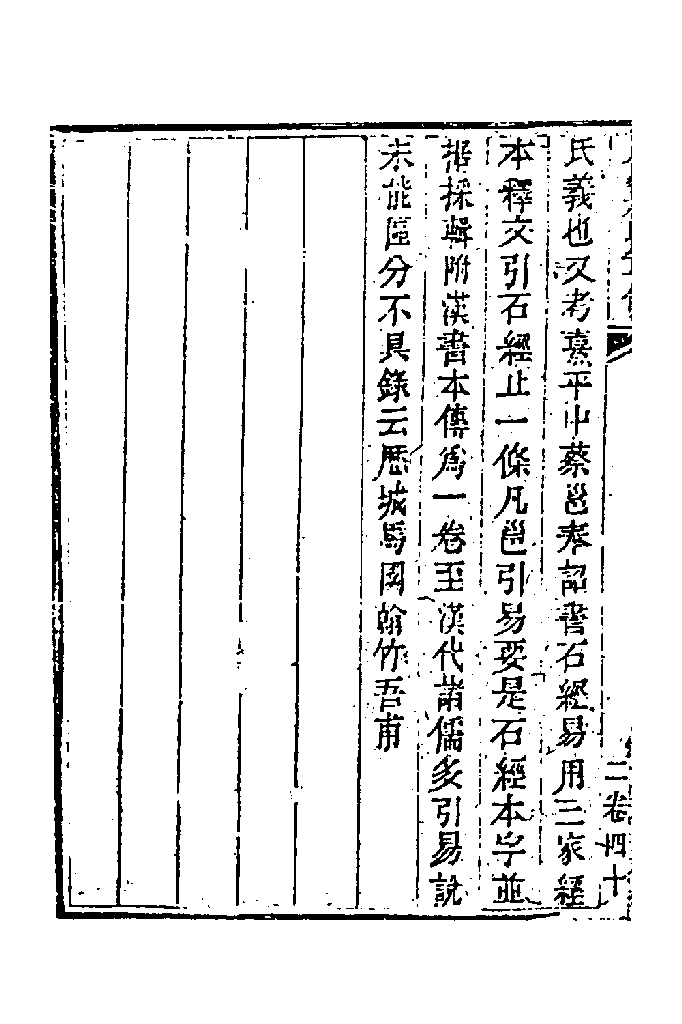 氏義也又考熹平中蔡邕奉詔書石經易用三家經
本釋文引石經止一條凡邕引易要是石經本字並
據採輯附漢書本傳爲一卷至漢代諸儒多引易說
未能區分不具錄云歷城馬國翰竹吾甫
二卷四十